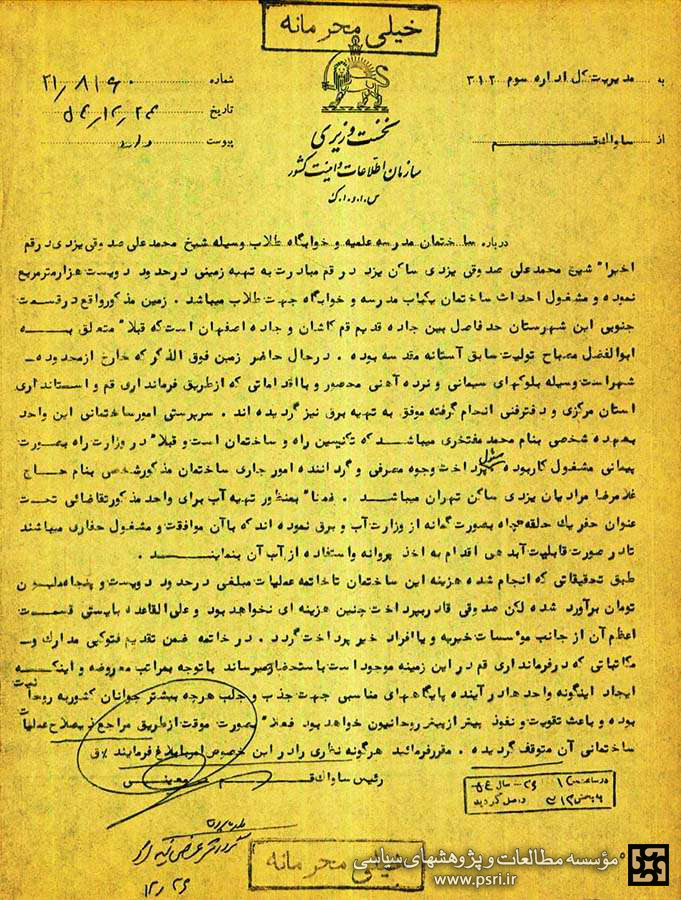 خیلی محرمانه
به مدیریت کل اداره سوم ۳۱۲
شماره ۲۱/۸۱۶۰
تاریخ
از ساواک قم
پیوست دارد
نخست وزیری
سازمان اطلاعات و امنیت کشور
س.ا.و.ا.ک
درباره ساختمان مدرسه علمیه و خوابگاه طلاب وسیله شیخ محمدعلی صدوقی یزدی در قم
اخیرا" شیخ محمدعلی صدوقی یزدی ساکن یزد در قم مبادرت به تهیه زمینی در حدود دویست هزار مترمربع
نموده و مشغول احداث ساختمان یکباب مدرسه و خوابگاه جهت طلاب میباشد . زمین مذکور واقع در قسمت
جنوبی این شهرستان حد فاصل بین جاده قدیم قم کاشان و جاده اصفهان است که قبلا" متعلق به
ابوالفضل مصباح تولیت سابق آستانه مقدسه بوده . در حال حاضر زمین فوق الذکر که خارج از محدوده
شهر است وسیله بلوکهای سیمانی و نرده آهنی محصور و با اقداماتی که از طریق فرمانداری قم و استانداری
استان مرکزی و دفتر فنی انجام گرفته موفق به تهیه برق نیز گردیده اند . سرپرستی امور ساختمانی این واحد
بعهده شخصی بنام محمد مفتخری میباشد که تکنیسین راه و ساختمان است و قبلا" در وزارت راه بصورت
پیمانی مشغول کار بوده مسئول پرداخت وجوه مصرفی و گرداننده امور جاری ساختمان مذکور شخصی بنام حاج
غلامرضا مرادیان یزدی ساکن تهران میباشد . ضمنا" بمنظور تهیه آب برای واحد مذکور تقاضائی تحت
عنوان حفر یک حلقه چاه بصورت گمانه از وزارت آب و برق نموده اند که با آن موافقت و مشغول حفاری میباشند
تا در صورت قابلیت آبدهی اقدام به اخذ پروانه و استفاده از آب آن بنمایند .
طبق تحقیقاتی که انجام شده هزینه این ساختمان تا خاتمه عملیات مبلغی در حدود دویست و پنجاه میلیون
تومان برآورد شده لکن صدوقی قادر بپرداخت چنین هزینه ای نخواهد بود و علی القاعده بایستی قسمت
اعظم آن از جانب مؤسسات خیریه و یا افراد خیر پرداخت گردد . در خاتمه ضمن تقدیم فتوکپی مدارک و
مکاتباتی که در فرمانداری قم در این زمینه موجود است باستحضار میرساند با توجه بمراتب معروضه و اینکه
ایجاد اینگونه واحدها در آینده پایگاههای مناسبی جهت جذب و جلب هرچه بیشتر جوانان کشور به روحانیت
بوده و باعث تقویت و نفوذ بیشتر از پیشتر روحانیون خواهد بود فعلا" بصورت موقت از طریق مراجع ذیصلاح عملیات
ساختمانی آن متوقف گردیده . مقرر فرمائید هرگونه نظری را در این خصوص امر بابلاغ فرمایند
رئیس ساواک قم معینی
در ساعت
به بخش ۳۱۲ واصل گردید
خیلی محرمانه
مؤسسه مطالعات و پژوهشهای سیاسی
www.psri.ir